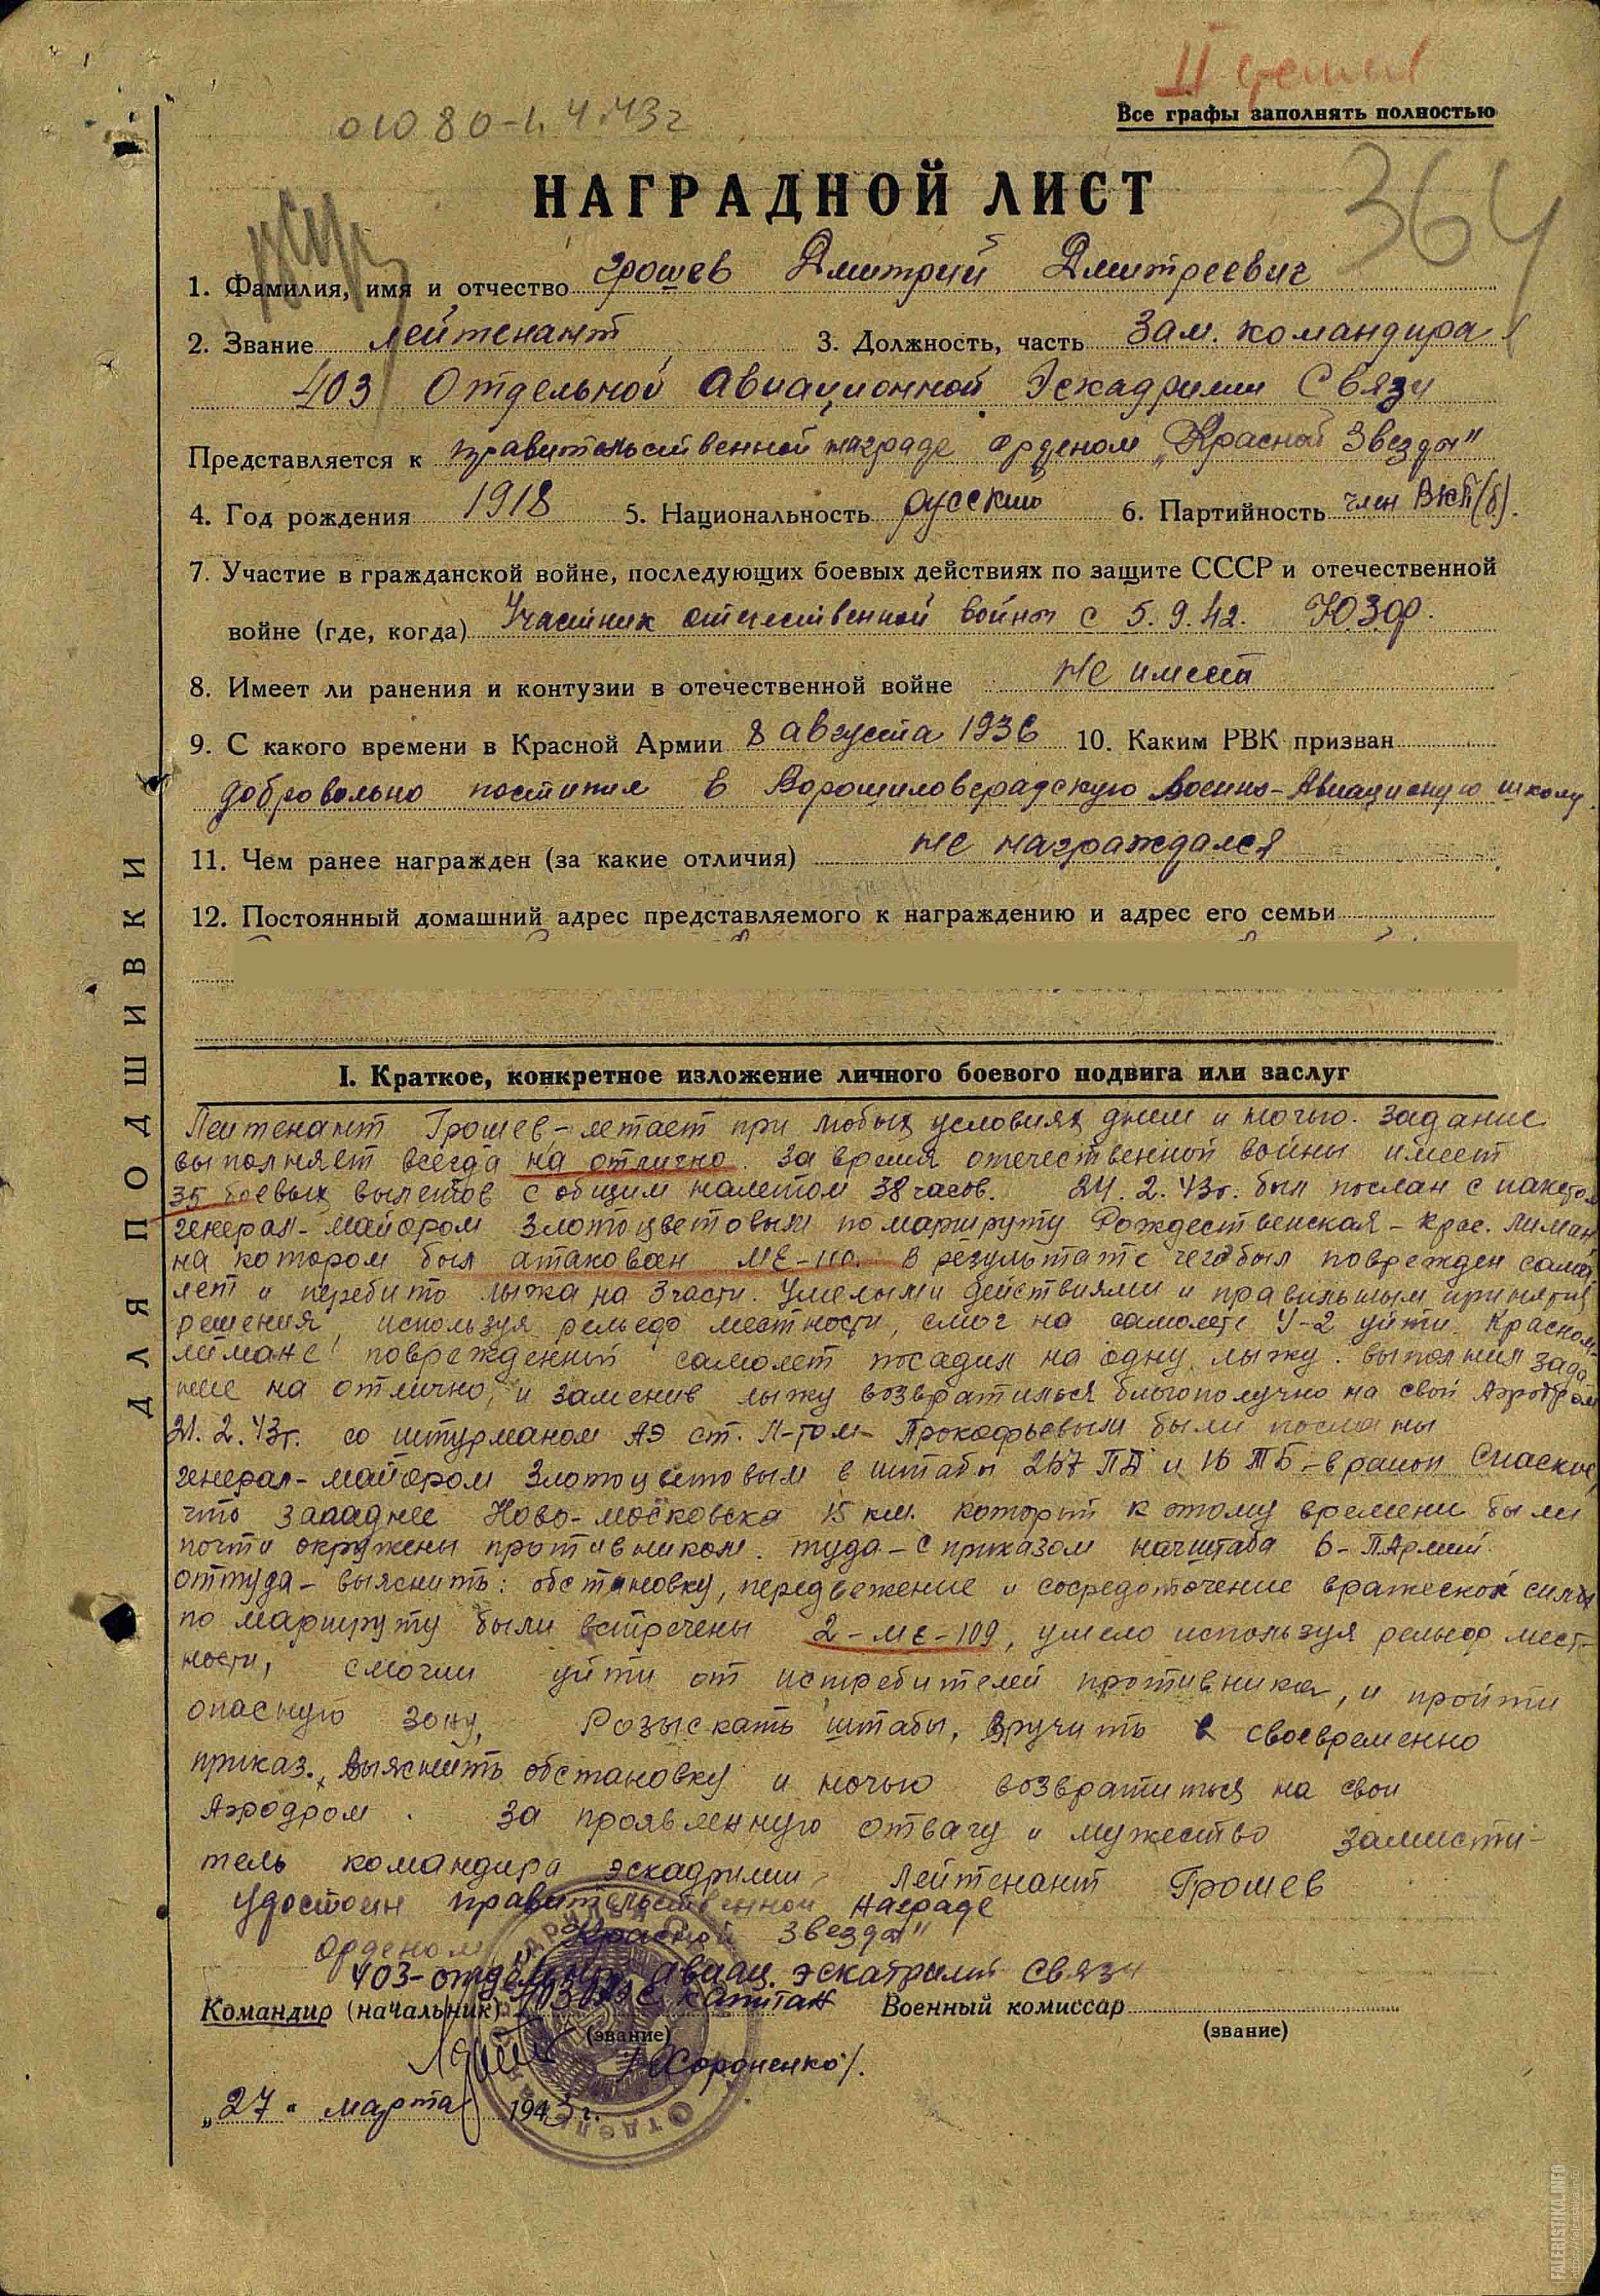 II степени
01080-1.4.43г
Все графы заполнять полностью
364
НАГРАДНОЙ ЛИСТ
1. Фамилия, имя и отчество Грошев Дмитрий Дмитреевич
2. Звание лейтенант 3. Должность, часть Зам. командира
403 Отдельной Авиационной Эскадрилии Связи
Представляется к правительственной награде орденом „Красной Звезды"
4. Год рождения 1918 5. Национальность русский 6. Партийность член ВКП(б).
7. Участие в гражданской войне, последующих боевых действиях по защите СССР и отечественной
войне (где, когда) Участник отечественной войны с 5.9.42. ЮЗФ.
8. Имеет ли ранения и контузии в отечественной войне не имеет
9. С какого времени в Красной Армии 8 августа 1936 10. Каким РВК призван
добровольно поступил в Ворошиловградскую Военно-Авиационую школу.
11. Чем ранее награжден (за какие отличия) не награждался
12. Постоянный домашний адрес представляемого к награждению и адрес его семьи
ДЛЯ ПОДШИВКИ
I. Краткое, конкретное изложение личного боевого подвига или заслуг
Лейтенант Грошев,- летает при любых условиях днем и ночью. Задание
выполняет всегда на отлично. За время отечественной войны имеет
35 боевых вылетов с общим налетом 38 часов. 24.2.43г. был послан с пакетом
генерал-майором Златоцветовым по маршруту Рождественская - Крас. Лиман
на котором был атакован МЕ-110. В результате чего был поврежден само
лет и перебито лыжа на 3 части. Умелыми действиями и правильным принятия
решения, используя рельеф местности, смог на самолете У-2 уйти. Красном-
лимане поврежденный самолет посадил на одну лыжу. Выполнил зада-
ние на отлично, и заменив лыжу возвратился благополучно на свой Аэродром
21.2.43г. со штурманом АЭ ст. Л-том- Прокофьевым были посланы
генерал-майором Златоцветовым в штабы 267 ПД и 16 ТБ - в район Спаское,
что западнее Ново-московска 15 км. которые к этому времени были
почти окружены противником. туда - с приказом начштаба 6-П.Армии
оттуда - выяснить: обстановку, передвежение и сосредоточение вражеской силы
по маршруту были встречены 2-МЕ-109, умело используя рельеф мест-
ности, смогли уйти от истребителей противника, и пройти
опасную зону. Розыскать штабы, вручить своевременно
приказ, выяснить обстановку и ночью возвратиться на свои
Аэродром. За проявленную отвагу и мужество замисти-
тель командира эскадрилии Лейтенант Грошев
удостоин правительственной награде
орденом „Красной Звезды"
403-отдельной авиац. эскатрилии связи
Командир (начальник) 403 ОАЭС капитан Военный комиссар
(звание) (звание)
/Хороненко/.
„27" марта 1943 г.
FALERISTIKA.INFO